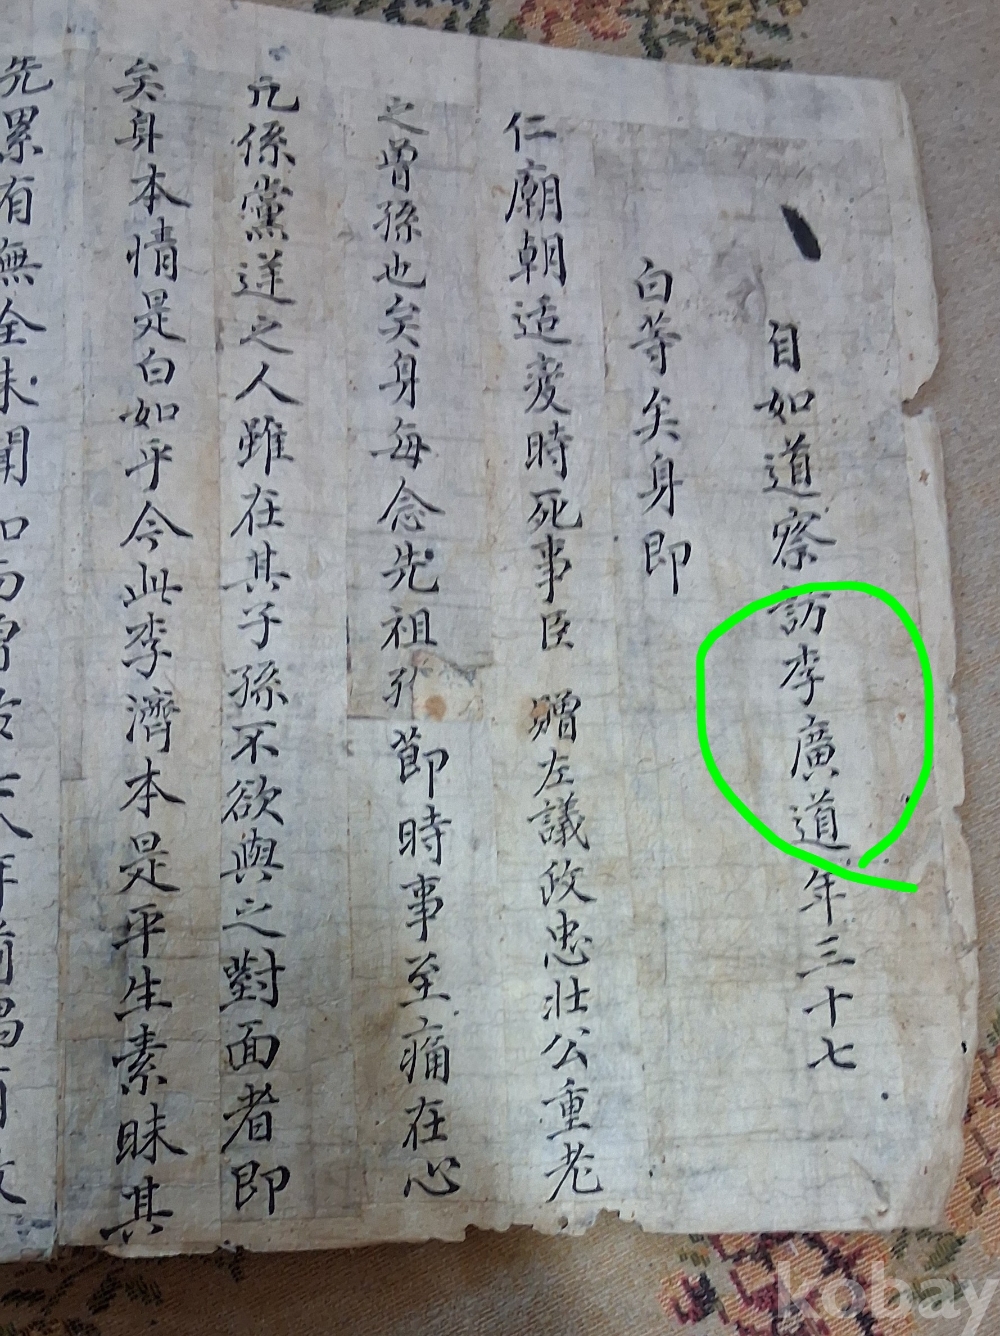 自如道察訪李廣道年三十七
白等矣身即
仁廟朝适変時死事臣 贈左議政忠壯公重老
之曾孫也矣身每念先祖 節時事至痛在心
凢係黨逆之人雖在其子孫不欲與之對面者即
矣身本情是白如乎今此李濟本是平生素昧其
先累有無全未聞知而曾
kobay